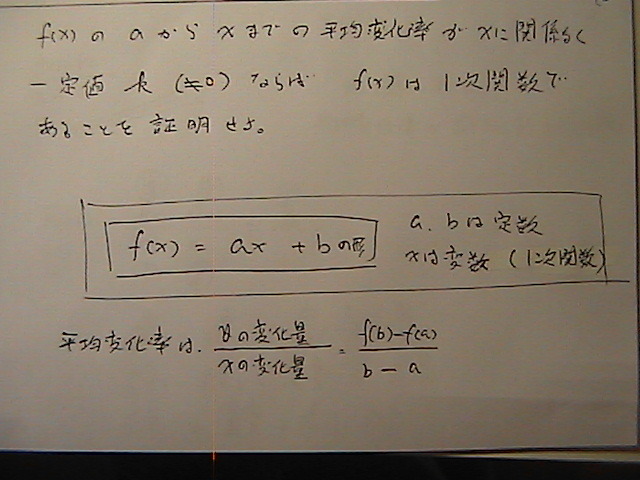 f(x) の a から x までの 平均変化率が xに関係なく
一定値 k (≠0) ならば f(x) は 1次関数で
あることを証明せよ。
f(x) = ax + b の形
a, b は定数
xは変数 (1次関数)
平均変化率は、 yの変化量/xの変化量 = f(b)-f(a)/b-a